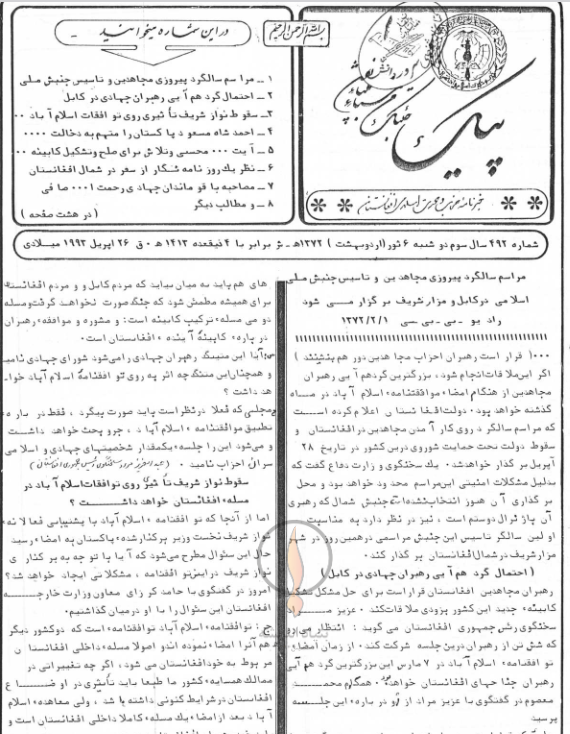 بسم الله الرحمن الرحیم
در این شماره میخوانید -
۱ - مراسم سالگرد پیروزی مجاهدین و تاسیس جنبش ملی
۲ - احتمال گردهم آیی رهبران جهادی در کابل
۳- سقوط نواز شریف تأثیری روی توافقات اسلام آباد ۰۰
۴ - احمد شاه مسعود پاکستان را متهم به دخالت ۰۰۰۰
۵ - آیت ۰۰۰ محسنی و تلاش برای صلح و تشکیل کابینه ۰۰
۶ - نظر یک روزنامه نگار از سفر در شمال افغانستان
۷ - مصاحبه با قوماندان جهادی رحمت ا۰۰۰ صافی
۸ - و مطالب دیگر
( در هشت صفحه )
پیک
خبرنامه حزب وحدت اسلامی افغانستان
شماره ۴۹۲ سال سوم دوشنبه ۶ ثور (اردیبهشت) ۱۳۷۲هـ ش برابر با ۴ ذیقعده ۱۴۱۳ هـ ق ۲۶ اپریل ۱۹۹۳ میلادی
مراسم سالگرد پیروزی مجاهدین و تاسیس جنبش ملی
اسلامی در کابل و مزار شریف برگزار می شود
رادیو بی بی سی ۱۳۷۲/۲/۱
۰۰۰( قرار است رهبران احزاب مجاهدین دور هم بنشینند )
اگر این ملاقات انجام شود ، بزرگترین گردهم آیی رهبران
مجاهدین از هنگام امضاء موافقتنامه اسلام آباد در ماه
گذشته خواهد بود. دولت افغانستان اعلام کرده است
که مراسم سالگرد روی کار آمدن مجاهدین در افغانستان و
سقوط دولت تحت حمایت شوروی درین کشور در تاریخ ۲۸
آپریل برگذار خواهد شد. یک سخنگوی وزارت دفاع گفت که
بدلیل مشکلات امنیتی این مراسم محدود خواهد بود و محل
برگذاری آن هنوز انتخاب نشده است جنبش شمال که رهبری
آن با ژنرال دوستم است ، نیز در نظر دارد به مناسبت
اولین سالگرد تاسیس این جنبش مراسمی در همین روز در شهر
مزار شریف در شمال افغانستان برگذار کند.
( احتمال گردهم آیی رهبران جهادی در کابل )
رهبران مجاهدین افغانستان قرار است برای حل مشکل
کابینه جدید این کشور بزودی ملاقات کنند. عزیز مراد
سخنگوی رئیس جمهوری افغانستان می گوید : انتظار می رود
که شش تن از رهبران درین جلسه شرکت کنند. از زمان امضاء
توافقنامه اسلام آباد در ۷ مارس این بزرگترین گردهم آیی
رهبران جهادی افغانستان خواهد همکارم محمد
معصوم در گفتگوی با عزیز مراد از او در باره این جلسه
پرسید
های هم باید به میان بیاید که مردم کابل و مردم افغانستان
برای همیشه مطمئن شود که جنگ صورت نخواهد گرفت و مسله
دومی مسله ترکیب کابینه است: و مشوره و موافقه رهبران
در باره کابینه آینده افغانستان است.
آیا این میتینگ رهبران جهادی را میشود شورای جهادی نامید
و همچنان این میتینگ چه اثر به روی توافقنامه اسلام آباد خواـ
هد داشت ؟
مجلسی که فعلا در نظر است باید صورت بگیرد ، فقط در باره
تطبیق موافقتنامه اسلام آباد ، جر و بحث خواهد داشت
و میشود این را جلسه یکمقدار شخصیتهای جهادی و اسلامی
سران احزاب نامید .
سقوط نواز شریف تأثیر روی توافقات اسلام آباد در
مسله افغانستان خواهد داشت ؟
اما از آنجا که توافقنامه اسلام آباد با پشتیبانی فعالانه
نواز شریف نخست وزیر برکنار شده پاکستان به امضاء رسید
حال این سئوال مطرح می شود که آیا با توجه به برکناری
نواز شریف در این توافقنامه ، مشکلاتی ایجاد خواهد شد؟
امروز در گفتگوی با حامد کرزای معاون وزارت خارجه
افغانستان این سئوال را با او در میان گذاشتیم.
ج : توافقنامه اسلام آباد توافقنامه است که دو کشور دیگر
هم آنرا امضاء نموده اند و اصولا مسله داخلی افغانستان
مربوط به خود افغانستان می شود، اگر چه تغییراتی در
ممالک همسایه کشور ما طبعا باید تأثیری در اوضاع
افغانستان در شرایط کنونی داشته باشد ، ولی معاهده اسلام
آباد بعد از امضاء یک مسله کاملا داخلی افغانستان است و